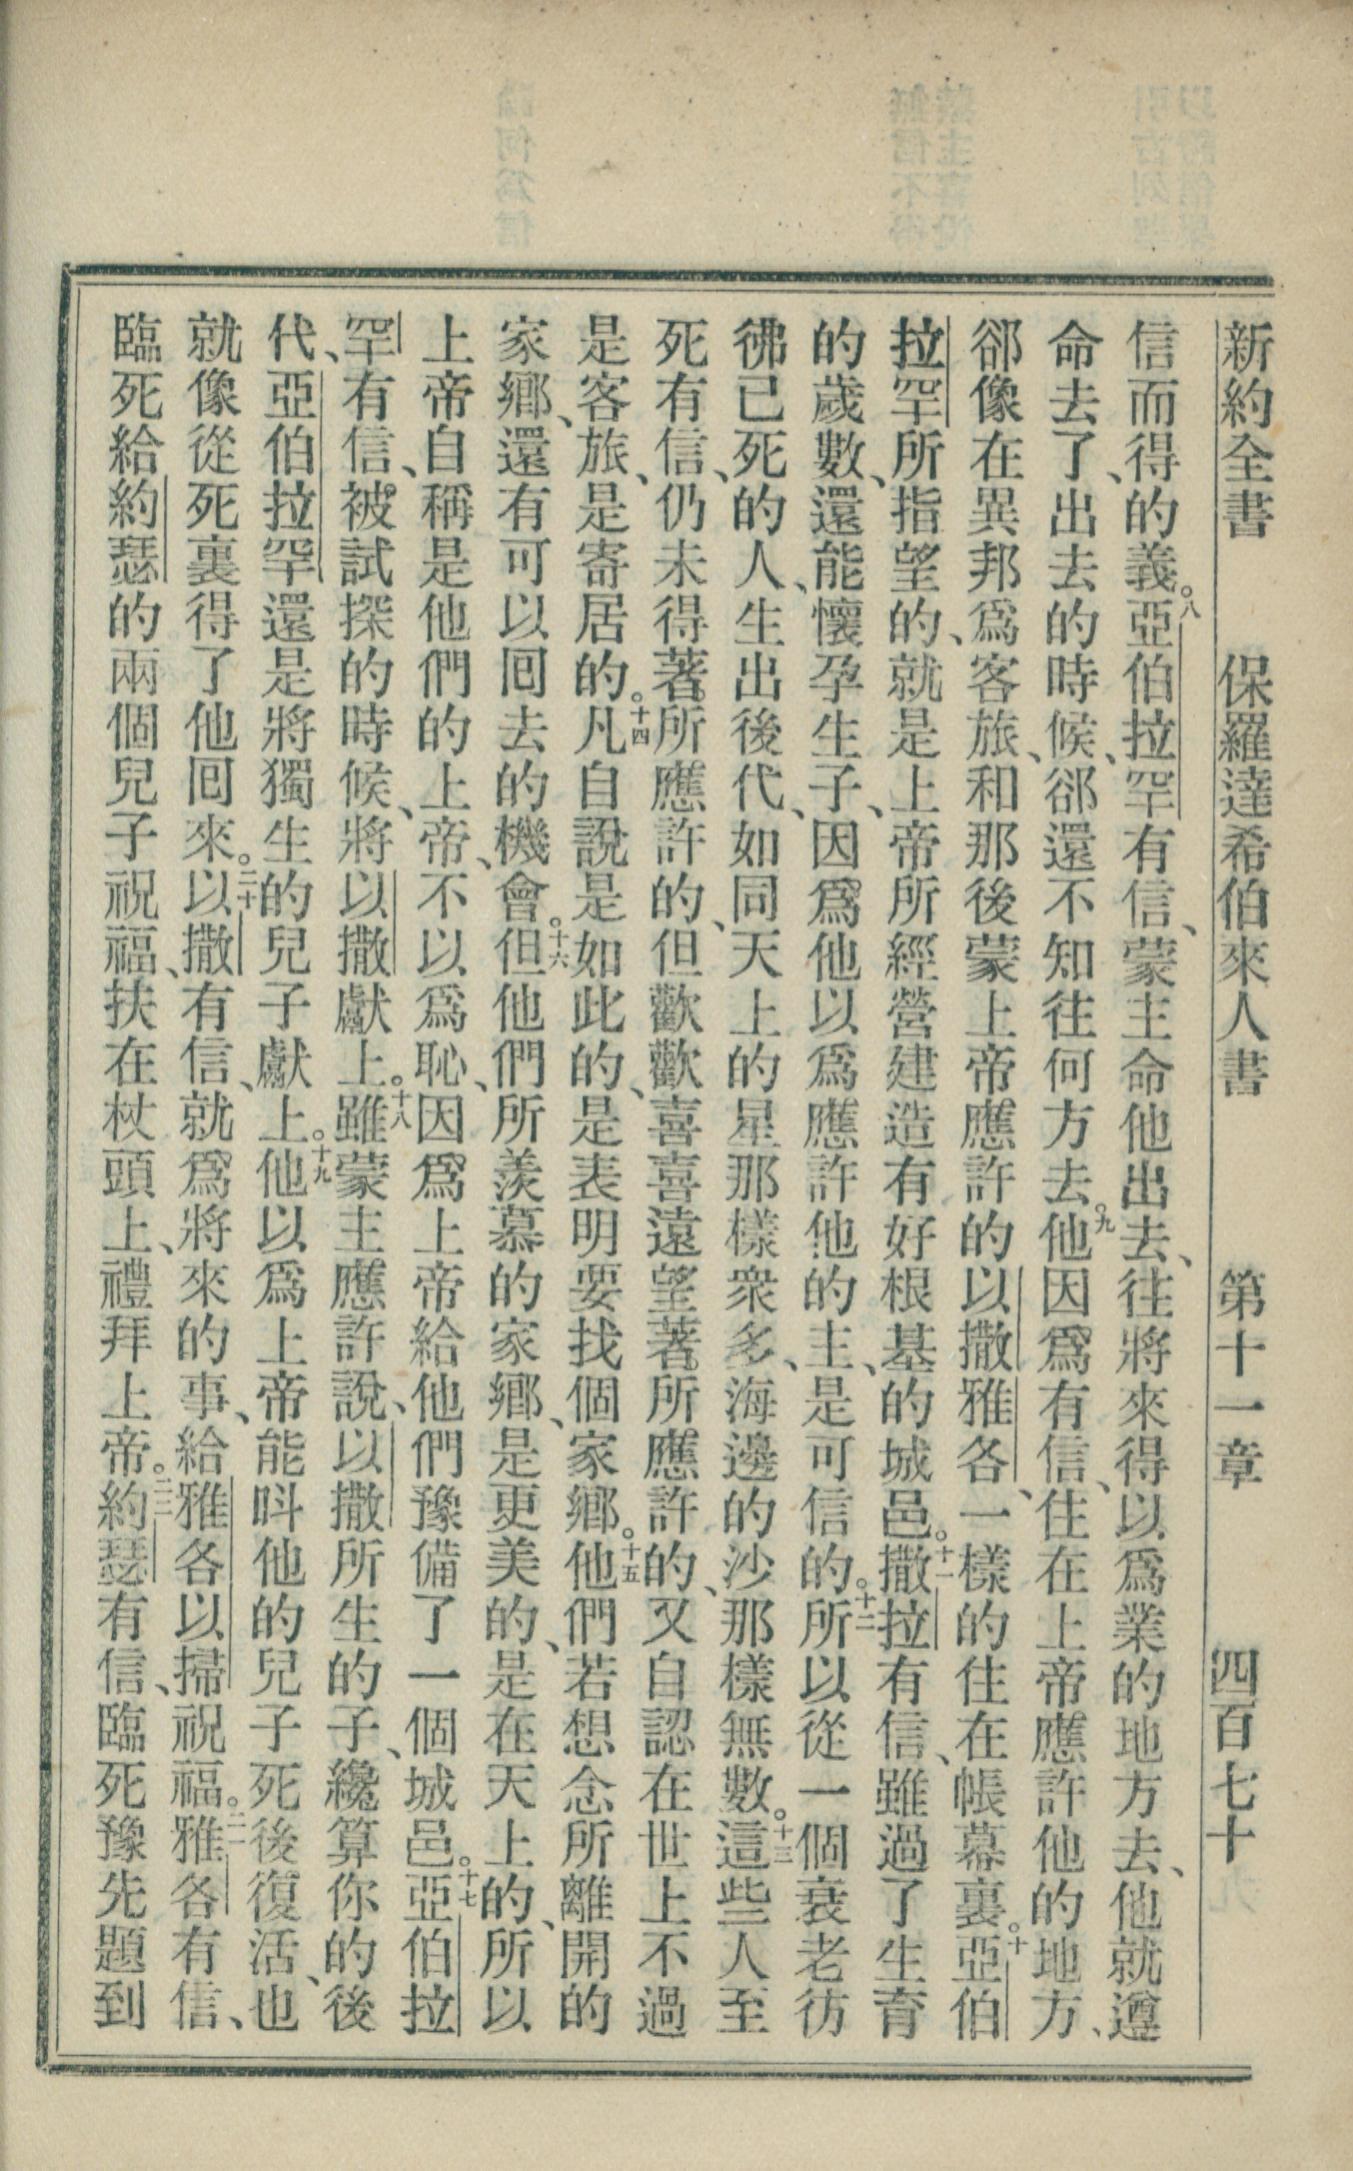 新約全書　保羅達希伯來人書　第十一章　四百七十九
信而得的義。八亞伯拉罕有信、蒙主命他出去、往將來得以爲業的地方去、他就遵
命去了、出去的時候、郤還不知往何方去。九他因爲有信、住在上帝應許他的地方、
郤像在異邦爲客旅、和那後蒙上帝應許的以撒雅各、一樣的住在帳幕裏。十亞伯
拉罕所指望的、就是上帝所經營建造有好根基的城邑。十一撒拉有信、雖過了生育
的歲數、還能懷孕生子、因爲他以爲應許他的主、是可信的。十二所以從一個衰老彷
彿已死的人、生出後代、如同天上的星那樣衆多、海邊的沙那樣無數。十三這些人至
死有信、仍未得著所應許的、但歡歡喜喜遠望著所應許的、又自認在世上不過
是客旅、是寄居的。十四凡自說是如此的、是表明要找個家鄉。十五他們若想念所離開的
家鄉、還有可以囘去的機會。十六但他們所羨慕的家鄉、是更美的、是在天上的、所以
上帝自稱是他們的上帝、不以爲恥、因爲上帝給他們豫備了一個城邑。十七亞伯拉
罕有信、被試探的時候、將以撒獻上。十八雖蒙主應許說、以撒所生的子、纔算你的後
代、亞伯拉罕還是將獨生的兒子獻上。十九他以爲上帝能呌他的兒子死後復活、也
就像從死裏得了他囘來。二十以撒有信、就爲將來的事、給雅各以掃祝福。二一雅各有信、
臨死給約瑟的兩個兒子祝福、扶在杖頭上、禮拜上帝。二二約瑟有信、臨死豫先題到